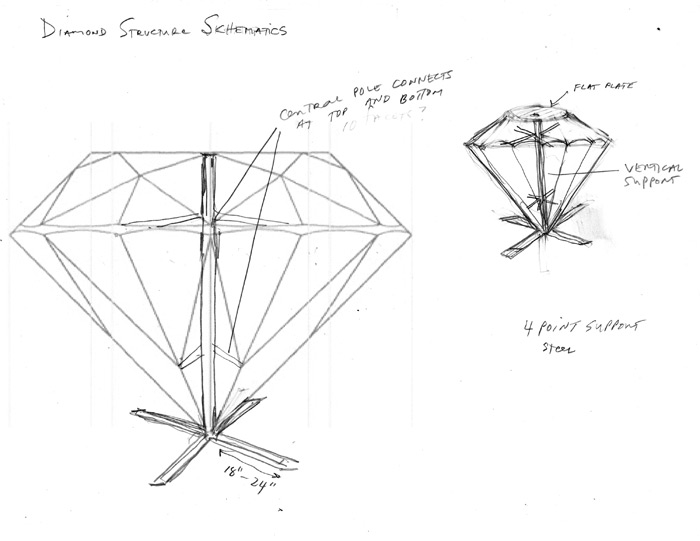 DIAMOND STRUCTURE SCHEMATICS
CENTRAL POLE CONNECTS
AT TOP AND BOTTOM
FLAT PLATE
VERTICAL
SUPPORT
4 POINT SUPPORT
STEEL
18"-24"